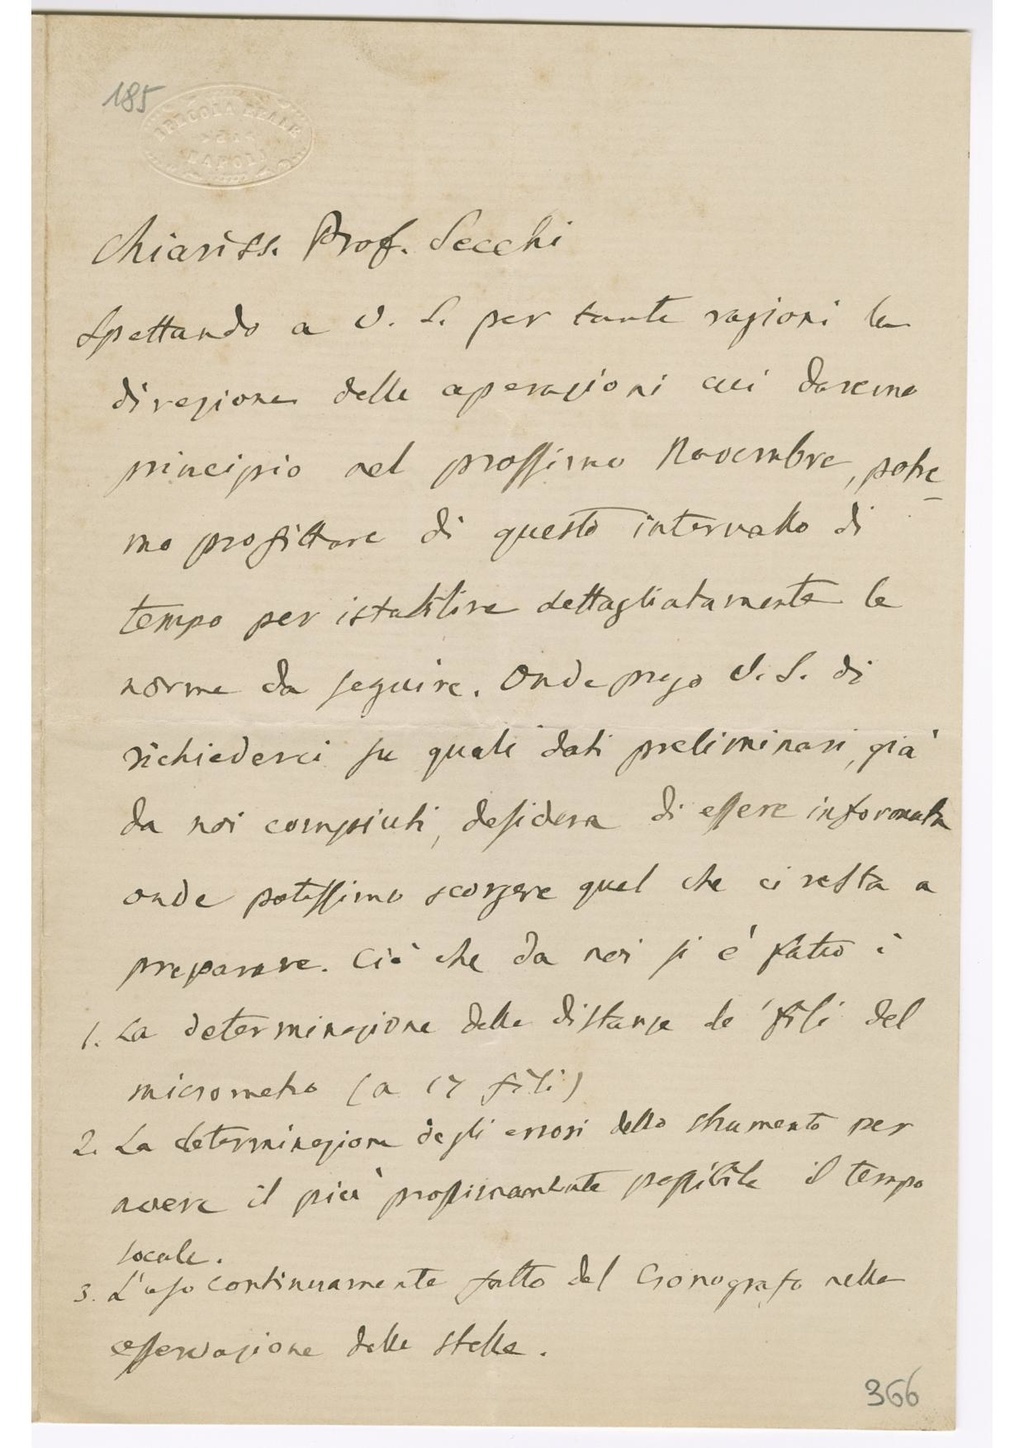 185
SPECOLA REALE
NAPOLI
Chiariss. Prof. Secchi
Spettando a V. S. per tante ragioni la
direzione delle operazioni cui daremo
principio nel prossimo Novembre, potre
mo profittare di questo intervallo di
tempo per istabilire dettagliatamente le
norme da seguire. Onde prego V. S. di
richiederci su quali dati preliminari, già
da noi compiuti, desidera di essere informata
onde potessimo scorgere quel che ci resta a
preparare. Ciò che da noi si è fatto è
1. La determinazione delle distanze de' fili del
micrometro (a 17 fili)
2. La determinazione degli errori dello strumento per
avere il più prossimamente possibile il tempo
locale.
3. L'uso continuamente fatto del Cronografo nella
osservazione delle stelle.
366